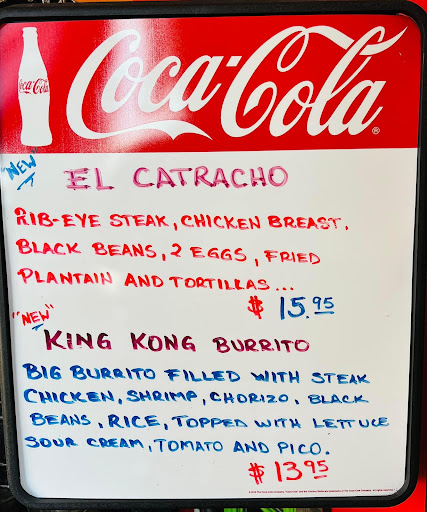 Coca-Cola
Coca-Cola ®
"NEW"
EL CATRACHO
RIB-EYE STEAK, CHICKEN BREAST.
BLACK BEANS, 2 EGGS, FRIED
PLANTAIN AND TORTILLAS...
$ 15.95
"NEW"
KING KONG BURRITO
BIG BURRITO FILLED WITH STEAK
CHICKEN, SHRIMP, CHORIZO, BLACK
BEANS, RICE, TOPPED WITH LETTUCE
SOUR CREAM, TOMATO AND PICO.
$ 13.95